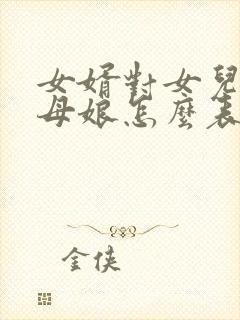 女婿對女兒
母娘怎麼表
金俠